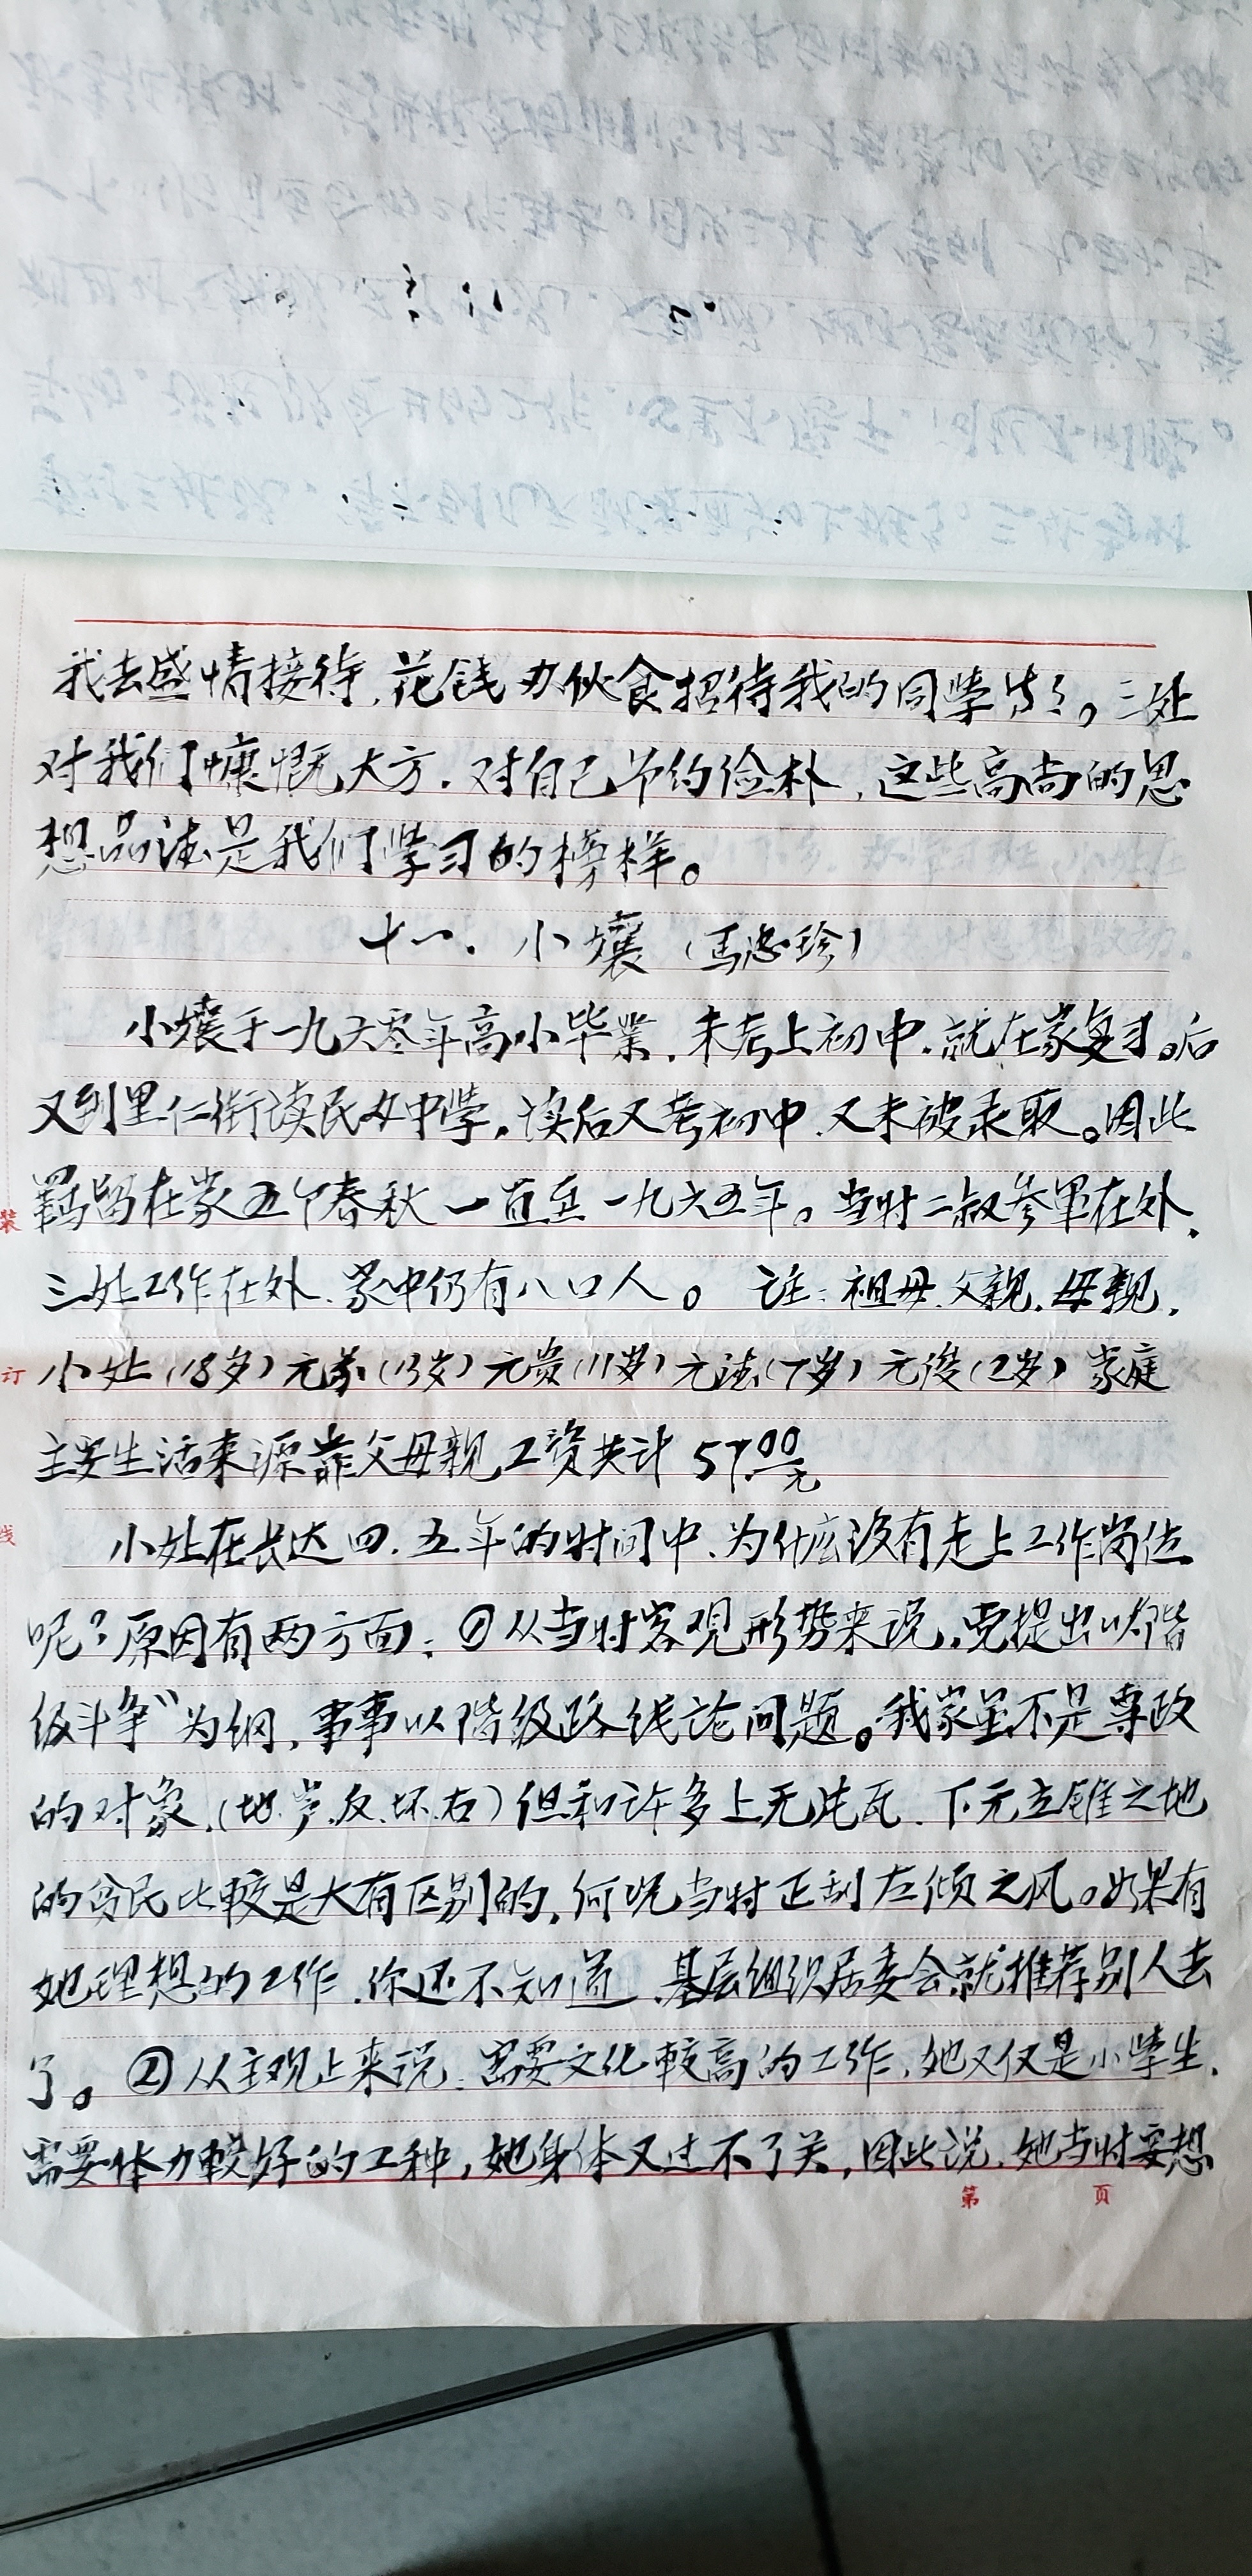 我去盛情接待，花钱办伙食招待我的同学们。三处
对我们慷慨大方．对自己节约俭朴，这些高尚的思
想品法是我们学习的榜样。
十一．小孃（马忠珍）
小孃于一九六零年高小毕业．未考上初中．就在家复习。后
又到里仁街读民办中学．读后又考初中．又未被录取。因此
羁留在家五个春秋一直至一九六五年。当时二叔参军在外．
三处工作在外．家中仍有八口人。 注：祖母．父亲．母亲．
小处（18岁）元（13岁）元贵（11岁）元法（7岁）元俊（2岁）家庭
主要生活来源靠父母亲工资共计57.00元
小处在长达四．五年的时间中．为什么没有走上工作岗位
呢？原因有两方面：①从当时客观形势来说．党提出以“阶
级斗争”为纲，事事以阶级路线论问题。我家虽不是专政
的对象．（地．富．反．坏．右）但和许多上无片瓦．下无立锥之地
的贫民比较是大有区别的．何况当时正刮左倾之风。如果有
她理想的工作．你还不知道．基层组织居委会就推荐别人去
了。②从主观上来说．需要文化较高的工作．她又仅是小学生．
需要体力较好的工种，她身体又过不了关，因此说．她当时要想
装
订
线
第 页